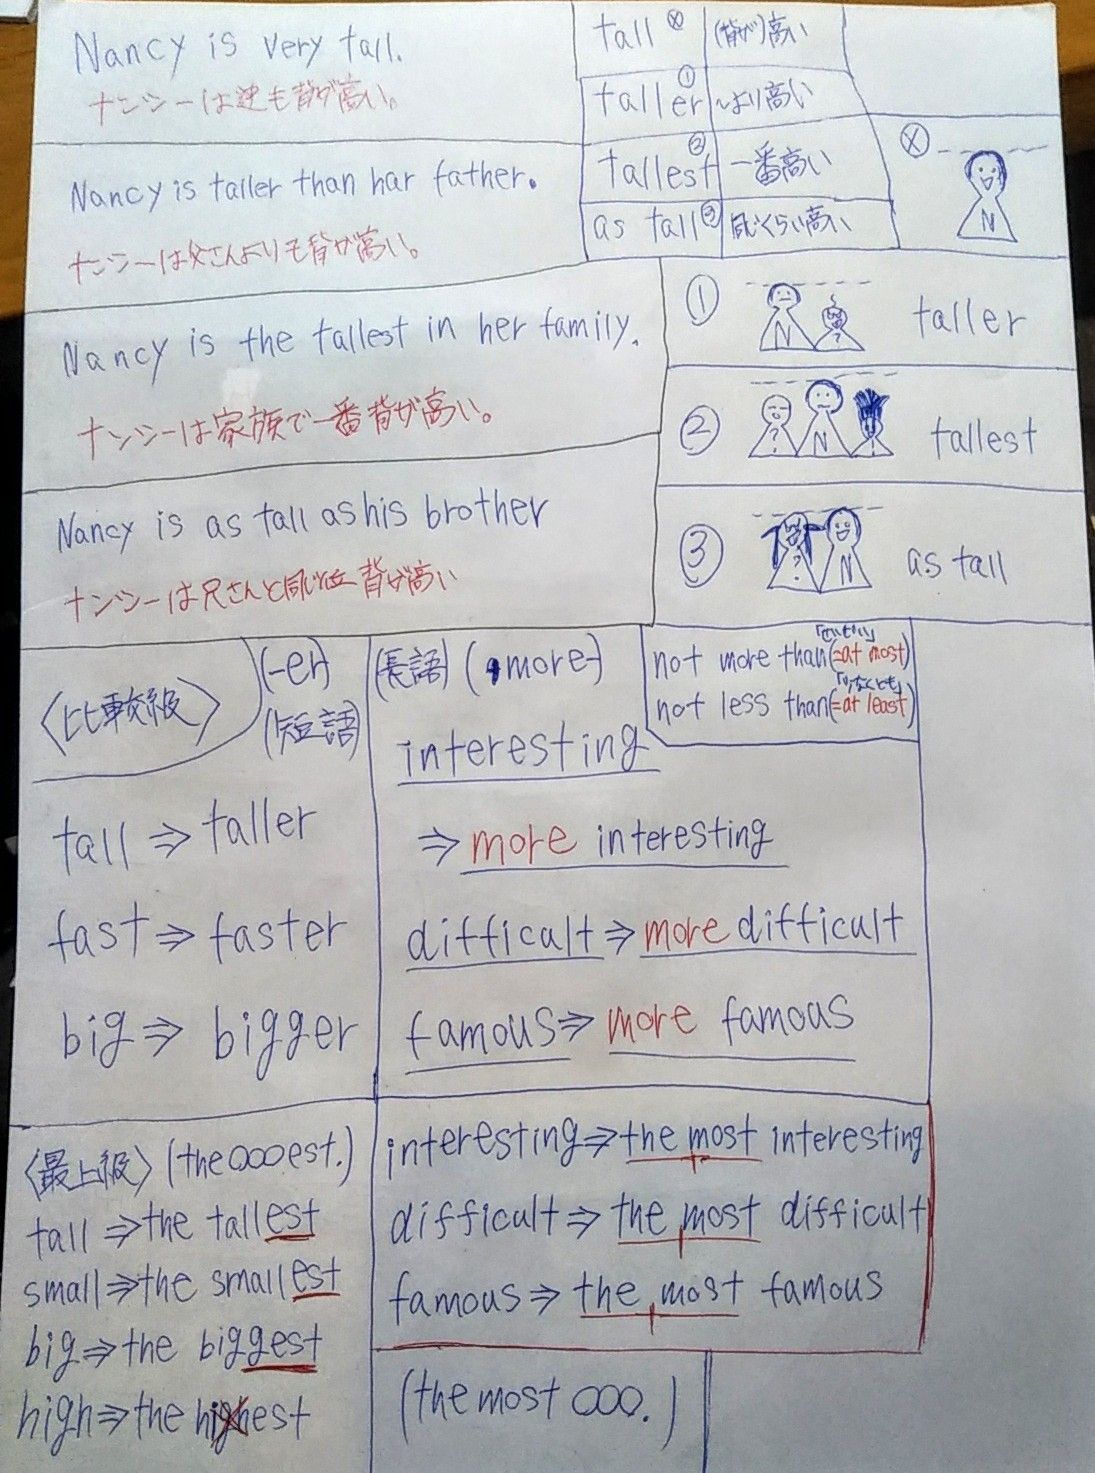 Nancy is very tall.
ナンシーは迚も背が高い。
tall ⓧ (背が)高い
taller ① ~より高い
tallest ② 一番高い
as tall ③ 同じくらい高い
ⓧ
N
Nancy is taller than har father.
ナンシーは父さんよりも背が高い。
① N ? taller
Nancy is the tallest in her family.
ナンシーは家族で一番背が高い。
② ? N tallest
Nancy is as tall as his brother
ナンシーは兄さんと同じ位背が高い
③ ? N as tall
〈比較級〉
(-er)
(短語)
(長語) (more-)
not more than(=at most)
not less than(=at least)
tall ⇒ taller
fast ⇒ faster
big ⇒ bigger
interesting
⇒ more interesting
difficult ⇒ more difficult
famous ⇒ more famous
〈最上級〉 (the ○○○est.)
tall ⇒ the tallest
small ⇒ the smallest
big ⇒ the biggest
high ⇒ the highest
interesting ⇒ the most interesting
difficult ⇒ the most difficult
famous ⇒ the most famous
(the most ○○○.)